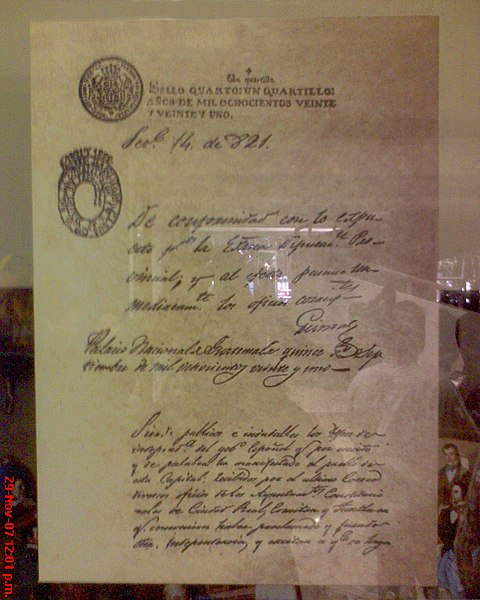 Un quartillo.
SELLO QUARTO: UN QUARTILLO:
AÑOS DE MIL OCHOCIENTOS VEINTE
Y VEINTE Y UNO.
Sepre. 14. de 821.
De conformidad con lo expu-
esto pr. la Exma. Diputacn. Pro-
vincial, y al efto. pasense in-
mediatamte. los oficios
Palacio Nacional de Guatemala quince de Sep-
tiembre de mil ochocientos veinte y uno
Siendo publicos e indudables los deseos de
independa. del gobo. Español qe. por escrito
y de palabra ha manifestado el pueblo de
esta Capital: recibidos por el ultimo Correo
diversos oficios de los Ayuntamtos. Constitucio-
nales de Ciudad Real, Comitan y Tuxtla en
qe. comunican haber proclamado y jurado
dha. independencia, y excitan a qe. se haga
29-Nov-07 12:01 p.m.